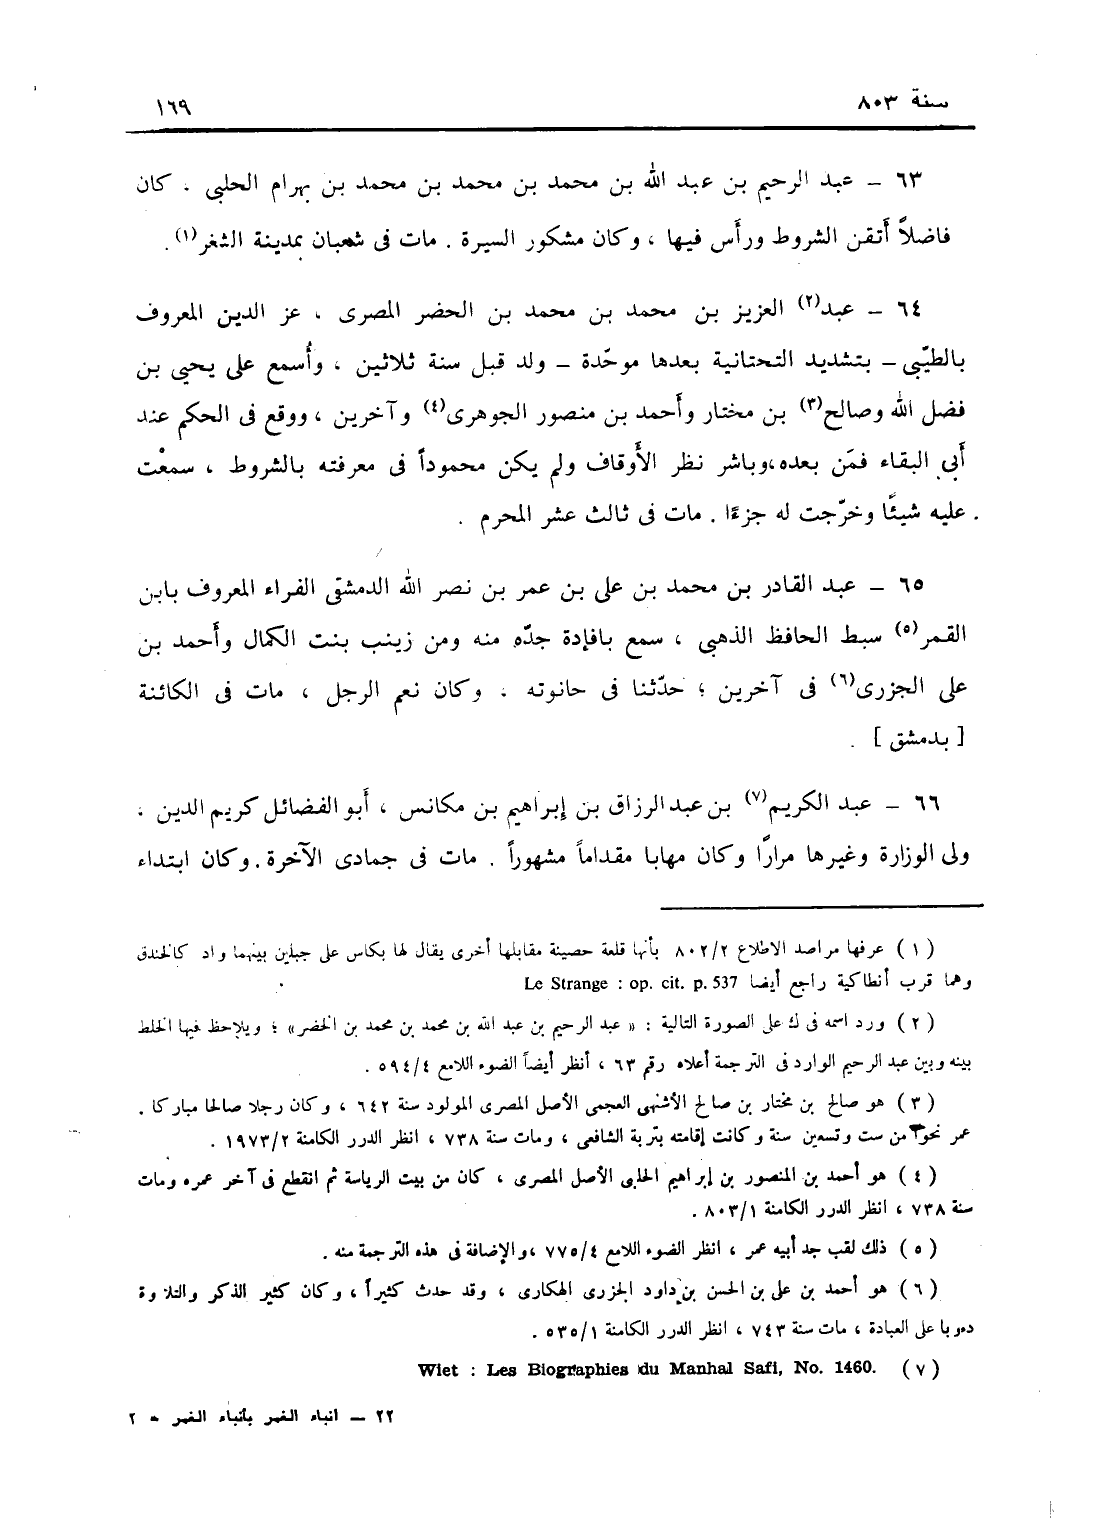 سنة ٨٠٣ ١٦٩
٦٣ – عبد الرحيم بن عبد الله بن محمد بن محمد بن محمد بن بهرام الحلبى . كان
فاضلاً أتقن الشروط ورأس فيها ، وكان مشكور السيرة . مات فى شعبان بمدينة الشغر(١) .
٦٤ – عبد(٢) العزيز بن محمد بن محمد بن الخضر المصرى ، عز الدين المعروف
بالطيّبى – بتشديد التحتانية بعدها موحّدة – ولد قبل سنة ثلاثين ، وأُسمع على يحيى بن
فضل الله وصالح(٣) بن مختار وأحمد بن منصور الجوهرى(٤) وآخرين ، ووقع فى الحكم عند
أبى البقاء فمَن بعده،وباشر نظر الأوقاف ولم يكن محموداً فى معرفته بالشروط ، سمعْت
عليه شيئًا وخرّجت له جزءًا . مات فى ثالث عشر المحرم .
٦٥ – عبد القادر بن محمد بن على بن عمر بن نصر الله الدمشقى الفراء المعروف بابن
القمر(٥) سبط الحافظ الذهبى ، سمع بافإدة جدّه منه ومن زينب بنت الكمال وأحمد بن
على الجزرى(٦) فى آخرين ؛ حدّثنا فى حانوته . وكان نعم الرجل ، مات فى الكائنة
[ بدمشق ] .
٦٦ – عبد الكريم(٧) بن عبد الرزاق بن إبراهيم بن مكانس ، أبو الفضائل كريم الدين ،
ولى الوزارة وغيرها مرارًا وكان مهابا مقداماً مشهوراً . مات فى جمادى الآخرة . وكان ابتداء
(١) عرفها مراصد الاطلاع ٨٠٢/٢ بأنها قلعة حصينة مقابلها أخرى يقال لها بكاس على جبلين بينهما واد كالخندق
وهما قرب أنطاكية راجع أيضا Le Strange : op. cit. p. 537
(٢) ورد اسمه فى ك على الصورة التالية : « عبد الرحيم بن عبد الله بن محمد بن محمد بن الخضر» ؛ ويلاحظ فيها الخلط
بينه وبين عبد الرحيم الوارد فى الترجمة أعلاه رقم ٦٣ ، أنظر أيضاً الضوء اللامع ٥٩٤/٤ .
(٣) هو صالح بن مختار بن صالح الأشنهى العجمى الأصل المصرى المولود سنة ٦٤٢ ، وكان رجلا صالحا مباركا .
عمر نحوا من ست وتسعين سنة وكانت إقامته بتربة الشافعى ، ومات سنة ٧٣٨ ، انظر الدرر الكامنة ١٩٧٣/٢ .
(٤) هو أحمد بن المنصور بن إبراهيم الحلبى الأصل المصرى ، كان من بيت الرياسة ثم انقطع فى آخر عمره ومات
سنة ٧٣٨ ، انظر الدرر الكامنة ٨٠٣/١ .
(٥) ذلك لقب جد أبيه عمر ، انظر الضوء اللامع ٧٧٥/٤ ،والإضافة فى هذه الترجمة منه .
(٦) هو أحمد بن على بن الحسن بن داود الجزرى الهكارى ، وقد حدث كثيراً ، وكان كثير الذكر والتلاوة
دءوبا على العبادة ، مات سنة ٧٤٣ ، انظر الدرر الكامنة ٥٣٥/١ .
(٧) Wiet : Les Biographies du Manhal Safi, No. 1460.
٢٢ – انباء الغمر بأنباء العمر - ٢